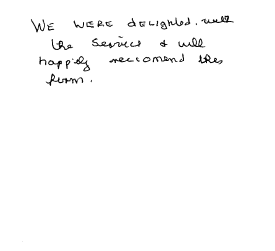 WE WERE delighted with
the Service & will
happily reccomend this
firm.